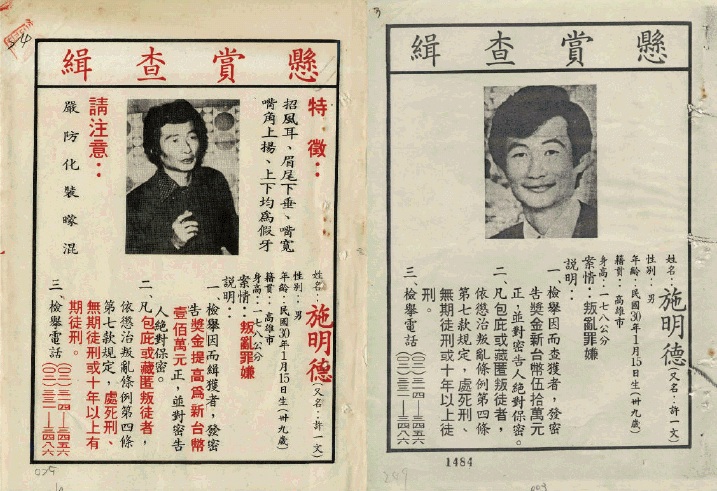 懸賞查緝
特徵：
招風耳、眉尾下垂、嘴寬
嘴角上揚、上下均為假牙
請注意：
嚴防化裝矇混
姓名：施明德（又名：許一文）
性別：男
年齡：民國30年1月15日生（卅九歲）
籍貫：高雄市
身高：一七八公分
案情：叛亂罪嫌
說明：
一、檢舉因而緝獲者，發密
告獎金提高為新台幣
壹佰萬元正，並對密告
人絕對保密。
二、凡包庇或藏匿叛徒者，
依懲治叛亂條例第四條
第七款規定，處死刑、
無期徒刑或十年以上有
期徒刑。
三、檢舉電話
（〇二）三一四—三四五六
（〇二）三三一—三四八六
029
懸賞查緝
姓名：施明德（又名：許一文）
性別：男
年齡：民國30年1月15日生（卅九歲）
籍貫：高雄市
身高：一七八公分
案情：叛亂罪嫌
說明：
一、檢舉因而查獲者，發密
告獎金新台幣伍拾萬元
正，並對密告人絕對保密。
二、凡包庇或藏匿叛徒者，
依懲治叛亂條例第四條
第七款規定，處死刑、
無期徒刑或十年以上徒
刑。
三、檢舉電話
（〇二）三一四—三四五六
（〇二）三三一—三四八六
1484